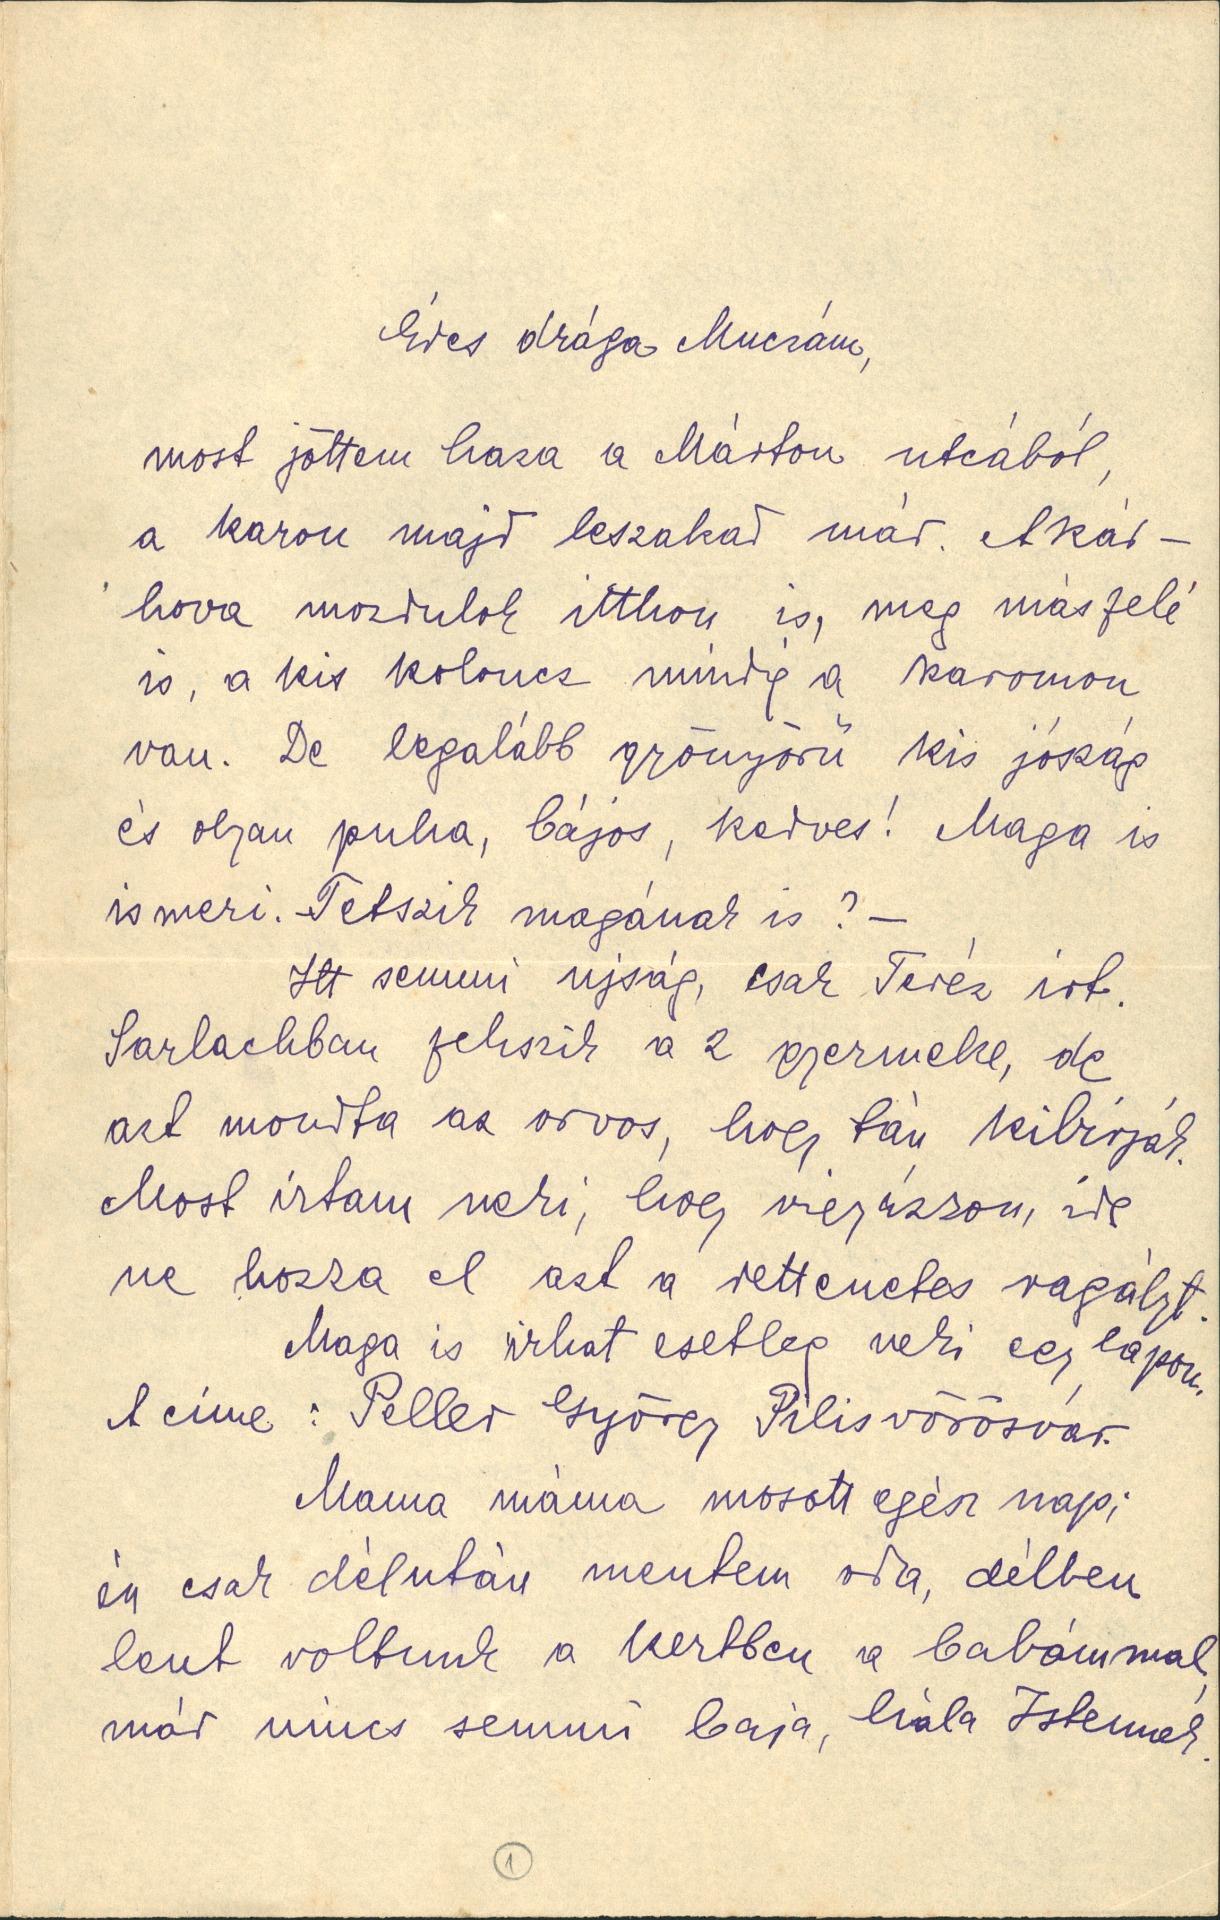 Édes drága Muczám,
most jöttem haza a Márton utcából,
a karom majd leszakad már. Akár-
hova mozdulok itthon is, meg másfelé
is, a kis koloncz mindig a karomon
van. De legalább gyönyörű kis jószág
és olyan puha, bájos, kedves! Maga is
ismeri. Tetszik magának is? –
Itt semmi ujság, csak Teréz irt.
Sarlachban fekszik a 2 gyermeke, de
azt mondta az orvos, hogy tán kibirják.
Most írtam neki, hogy vigyázzon, ide
ne hozza el azt a rettenetes ragályt.
Maga is irhat esetleg neki egy lapon.
A címe : Peller György Pilisvörösvár.
Mama máma mosott egész nap;
én csak délután mentem oda, délben
lent voltunk a kertben a babámmal,
már nincs semmi baja, hála Istennek.
1